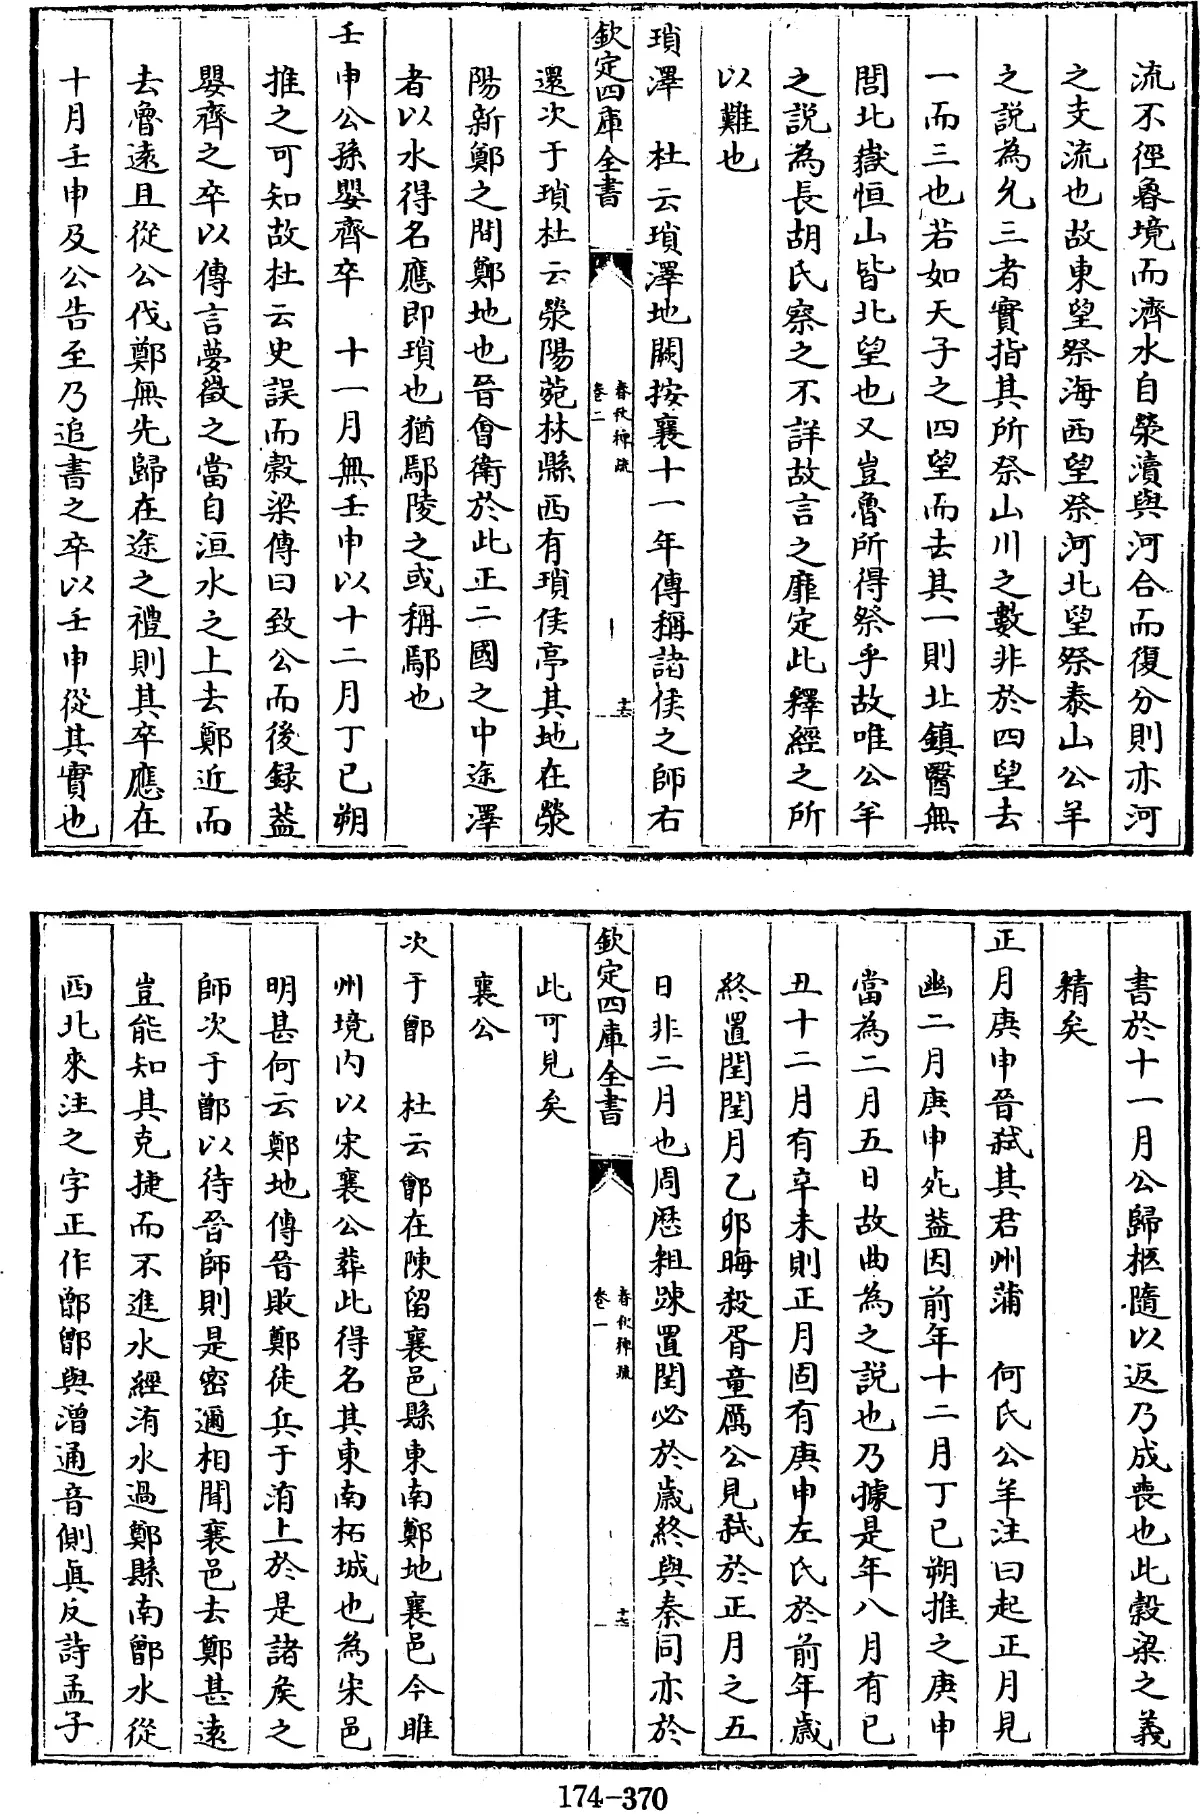 流不徑魯境而濟水自滎瀆與河合而復分則亦河
之支流也故東望祭海西望祭河北望祭泰山公羊
之說為允三者實指其所祭山川之數非於四望去
一而三也若如天子之四望而去其一則北鎮醫無
閭北嶽恒山皆北望也又豈魯所得祭乎故唯公羊
之說為長胡氏察之不詳故言之靡定此釋經之所
以難也
瑣澤　杜云瑣澤地闕按襄十一年傳稱諸侯之師右
欽定四庫全書
春秋稗疏
卷二
十六
還次于瑣杜云滎陽菀林縣西有瑣侯亭其地在滎
陽新鄭之間鄭地也晉會衛於此正二國之中途澤
者以水得名應即瑣也猶鄢陵之或稱鄢也
壬申公孫嬰齊卒　十一月無壬申以十二月丁巳朔
推之可知故杜云史誤而穀梁傳曰致公而後録葢
嬰齊之卒以傳言夢徵之當自洹水之上去鄭近而
去魯遠且從公伐鄭無先歸在途之禮則其卒應在
十月壬申及公告至乃追書之卒以壬申從其實也
書於十一月公歸柩隨以返乃成喪也此穀梁之義
精矣
正月庚申晉弑其君州蒲　何氏公羊注曰起正月見
幽二月庚申死葢因前年十二月丁巳朔推之庚申
當為二月五日故曲為之說也乃據是年八月有已
丑十二月有辛未則正月固有庚申左氏於前年歲
終置閏閏月乙卯晦殺胥童厲公見弑於正月之五
日非二月也周歴粗踈置閏必於歲終與秦同亦於
欽定四庫全書
春秋稗疏
卷一
十七
此可見矣
襄公
次于鄫　杜云鄫在陳留襄邑縣東南鄭地襄邑今睢
州境内以宋襄公葬此得名其東南柘城也為宋邑
明甚何云鄭地傳晉敗鄭徒兵于洧上於是諸矦之
師次于鄫以待晉師則是密邇相聞襄邑去鄭甚遠
豈能知其克捷而不進水經洧水過鄭縣南鄫水從
西北來注之字正作鄫鄫與潧通音側眞反詩孟子
174-370